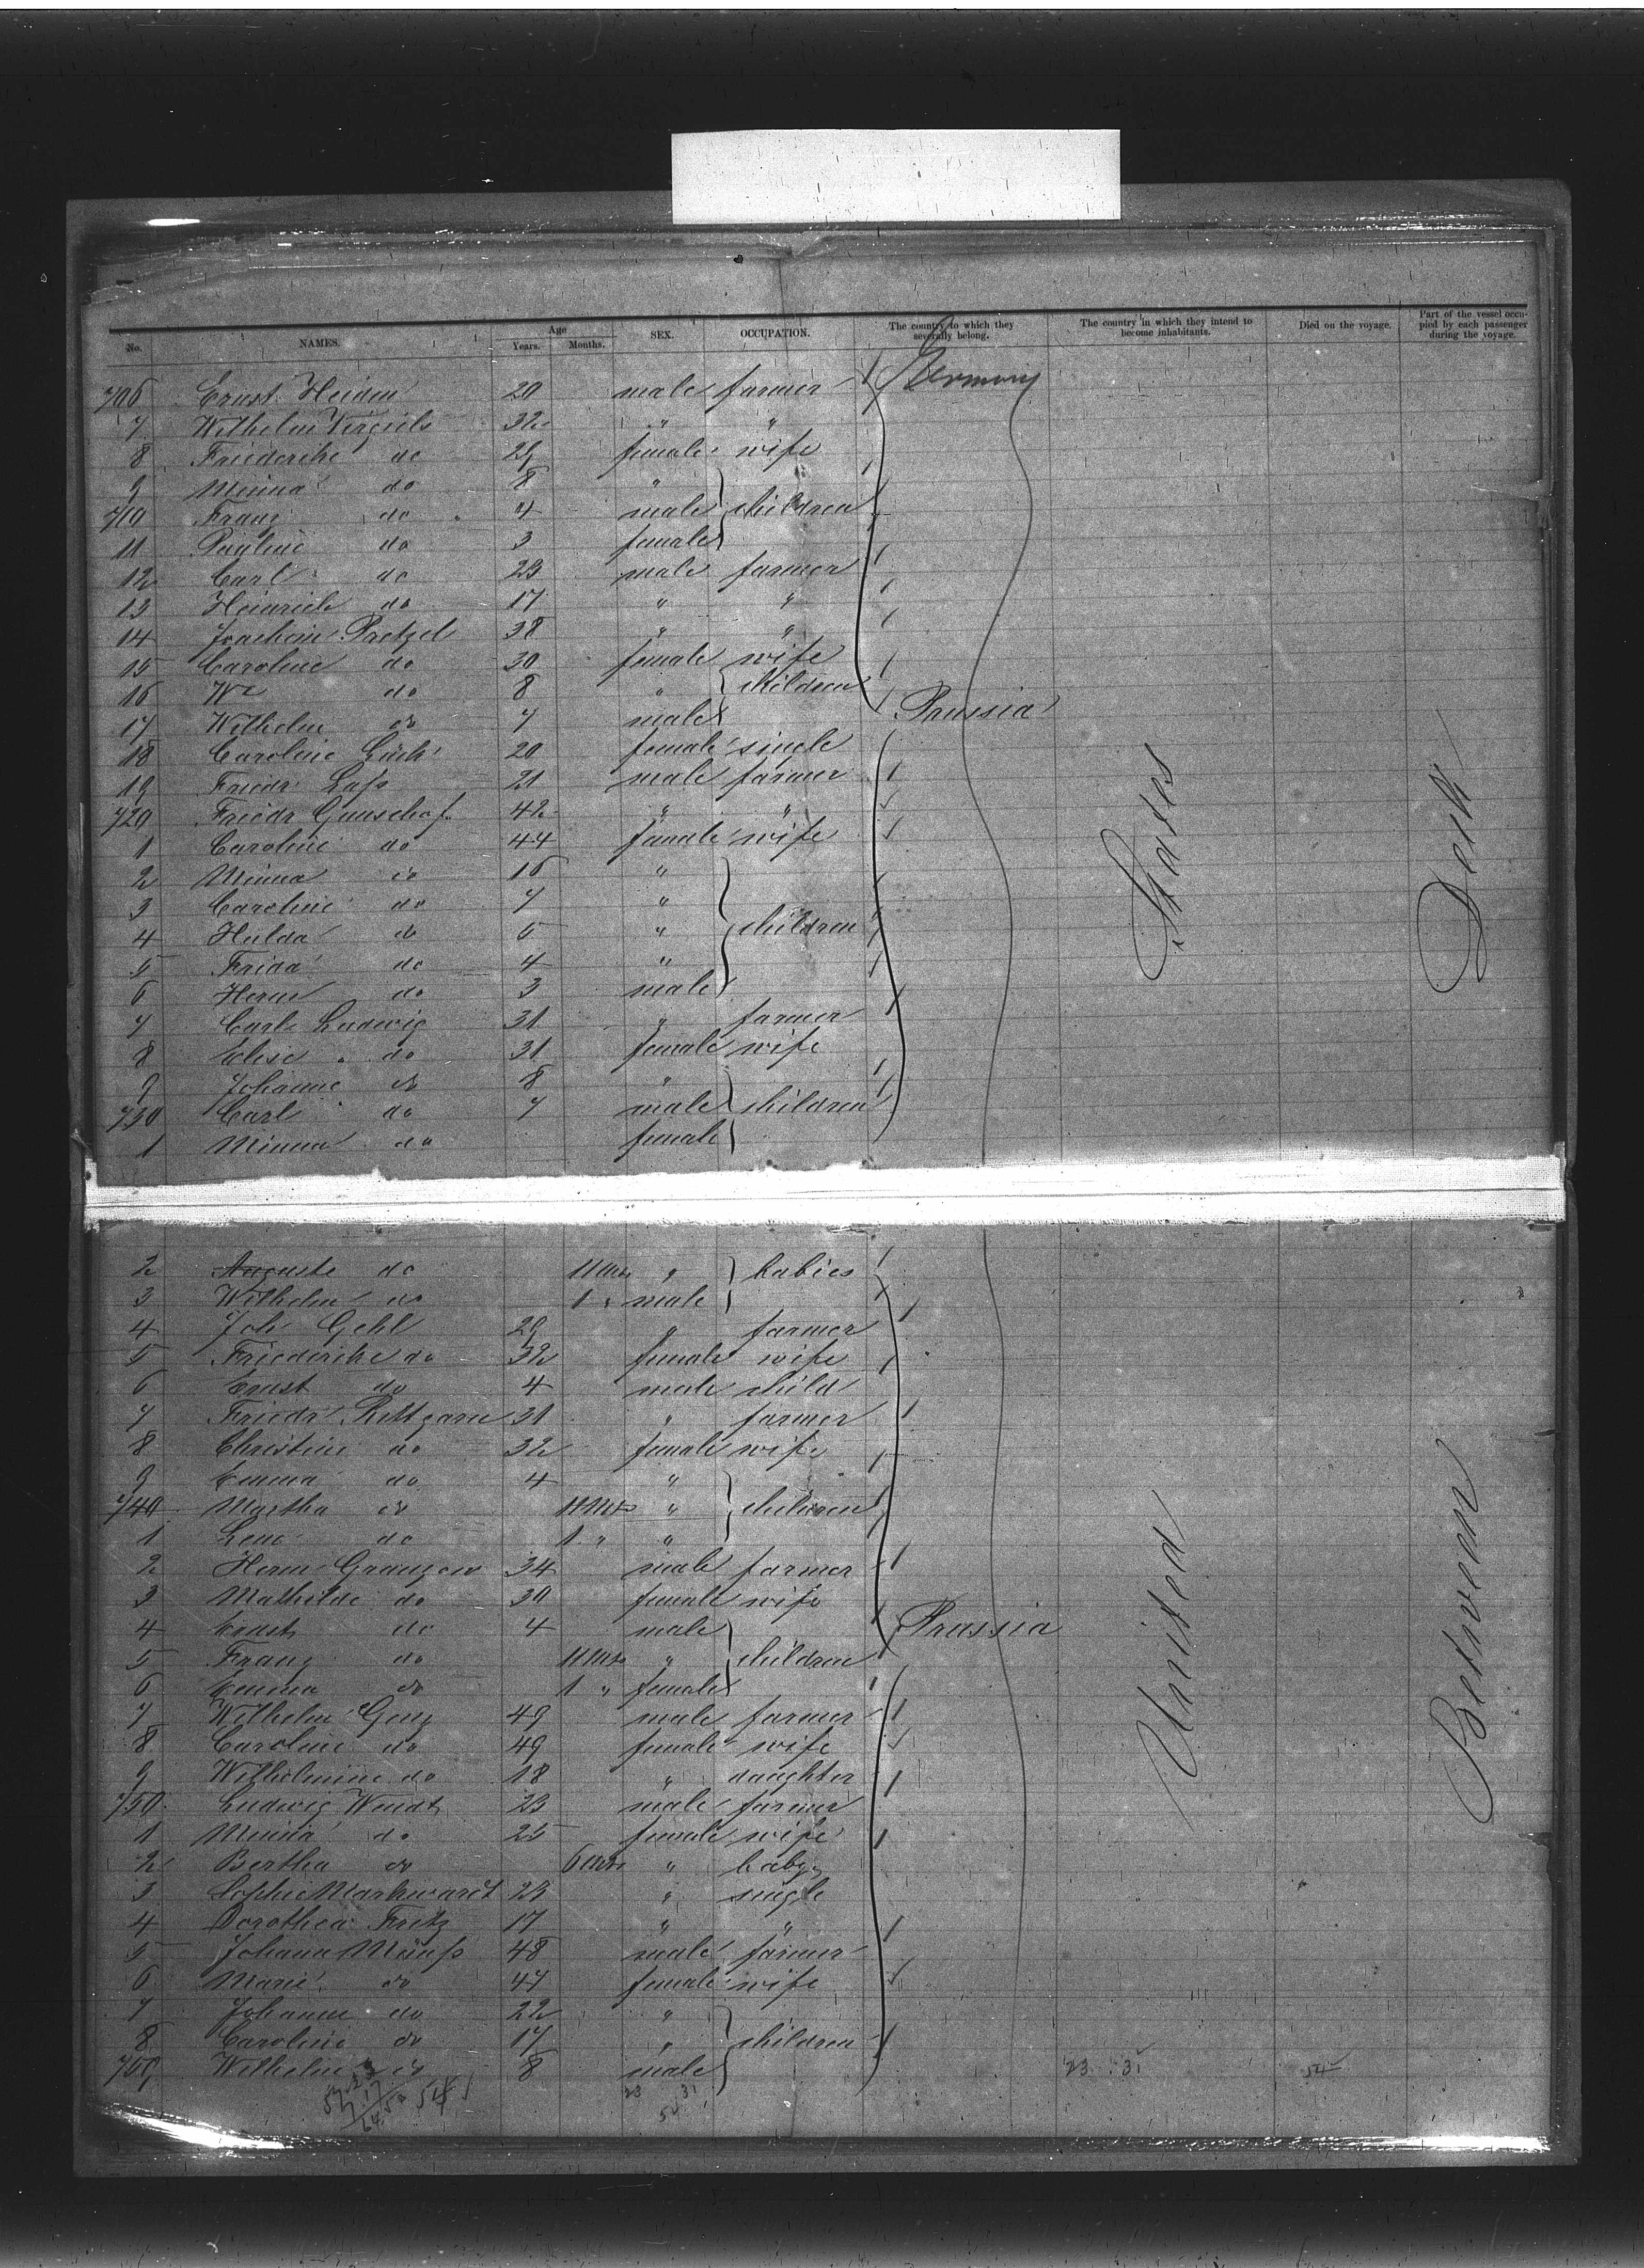 No. NAMES. Age Years. Months. SEX. OCCUPATION. The country to which they severally belong. The country in which they intend to become inhabitants. Died on the voyage. Part of the vessel occupied by each passenger during the voyage.
706 Ernst Heiden 20 male farmer Germany
7 Wilhelm 32 " "
8 Friederike do 29 female wife
9 Minna do 8 "
710 Franz do 4 male children
11 Pauline do 3 female
12 Carl do 23 male farmer
13 Heinrich do 17 " "
14 Joachim Pretzel 38 " "
15 Caroline do 30 female wife
16 do 8 " children
17 Wilhelm do 7 male Prussia
18 Caroline Lück 20 female single
19 Friedr Lass 21 male farmer
720 Friedr 42 " "
1 Caroline do 44 female wife
2 Minna do 16 "
3 Caroline do 7 "
4 Hulda do 6 " children
5 Frida do 4 "
6 Herm do 3 male
7 Carl Ludwig 31 " farmer
8 Elise do 31 female wife
9 Johanne do 8 "
730 Carl do 7 male children
1 Minna do female
2 Auguste do 11 mos " babies
3 Wilhelm do 1 " male
4 Joh Gehl 29 " farmer
5 Friederike do 32 female wife
6 Ernst do 4 male child
7 Friedr 31 " farmer
8 Christine do 32 female wife
9 Emma do 4 "
740 Martha do 11 Mos " children
1 Lene do 1 " "
2 Herm Granzow 34 male farmer
3 Mathilde do 30 female wife
4 Ernst do 4 male Prussia
5 Franz do 11 Mos " children
6 Emma do 1 " female
7 Wilhelm Genz 49 male farmer
8 Caroline do 49 female wife
9 Wilhelmine do 18 " daughter
750 Ludwig Wendt 23 male farmer
1 Minna do 25 female wife
2 Bertha do 6 mos " baby
3 Sophie Markwardt 23 " single
4 Dorothea Fritz 17 " "
5 Johann Mänss 48 male farmer
6 Marie do 47 female wife
7 Johanne do 22 "
8 Caroline do 17 " children
759 Wilhelm do 8 male
23 31 54
23 31
54
United States
Between Deck